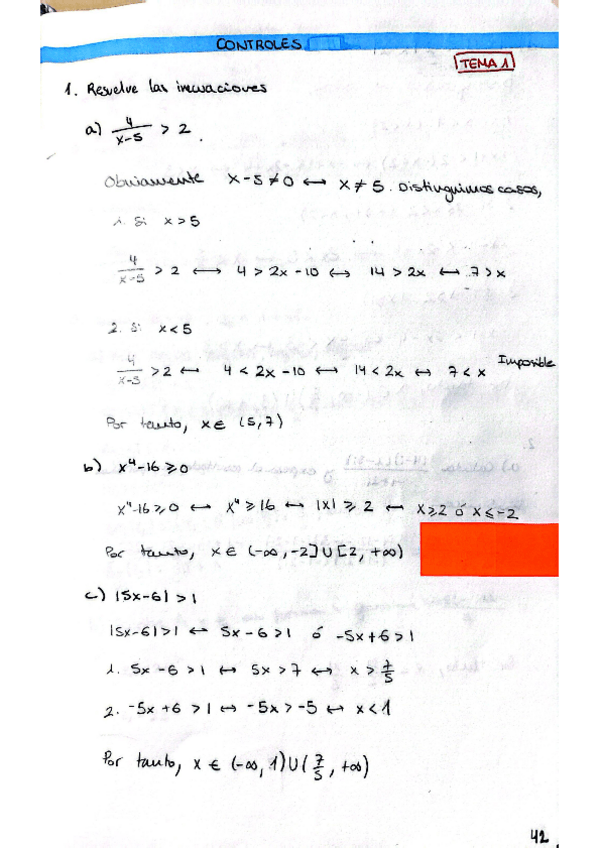 CONTROLES
TEMA 1
1. Resuelve las inecuaciones
a) 4/(x-5) > 2.
Obviamente x-5≠0 ↔ x≠5. Distinguimos casos,
1. Si x>5
4/(x-5) > 2 ↔ 4 > 2x-10 ↔ 14 > 2x ↔ 7 > x
2. Si x<5
4/(x-5) > 2 ↔ 4 < 2x-10 ↔ 14 < 2x ↔ 7 < x Imposible
Por tanto, x ∈ (5,7)
b) x⁴-16 ⩾ 0
x⁴-16 ⩾ 0 ↔ x⁴ ⩾ 16 ↔ |x| ⩾ 2 ↔ x ⩾ 2 ó x ⩽ -2
Por tanto, x ∈ (-∞, -2] U [2, +∞)
c) |5x-6| > 1
|5x-6| > 1 ↔ 5x-6 > 1 ó -5x+6 > 1
1. 5x-6 > 1 ↔ 5x > 7 ↔ x > 7/5
2. -5x+6 > 1 ↔ -5x > -5 ↔ x < 1
Por tanto, x ∈ (-∞, 1) U (7/5, +∞)
42